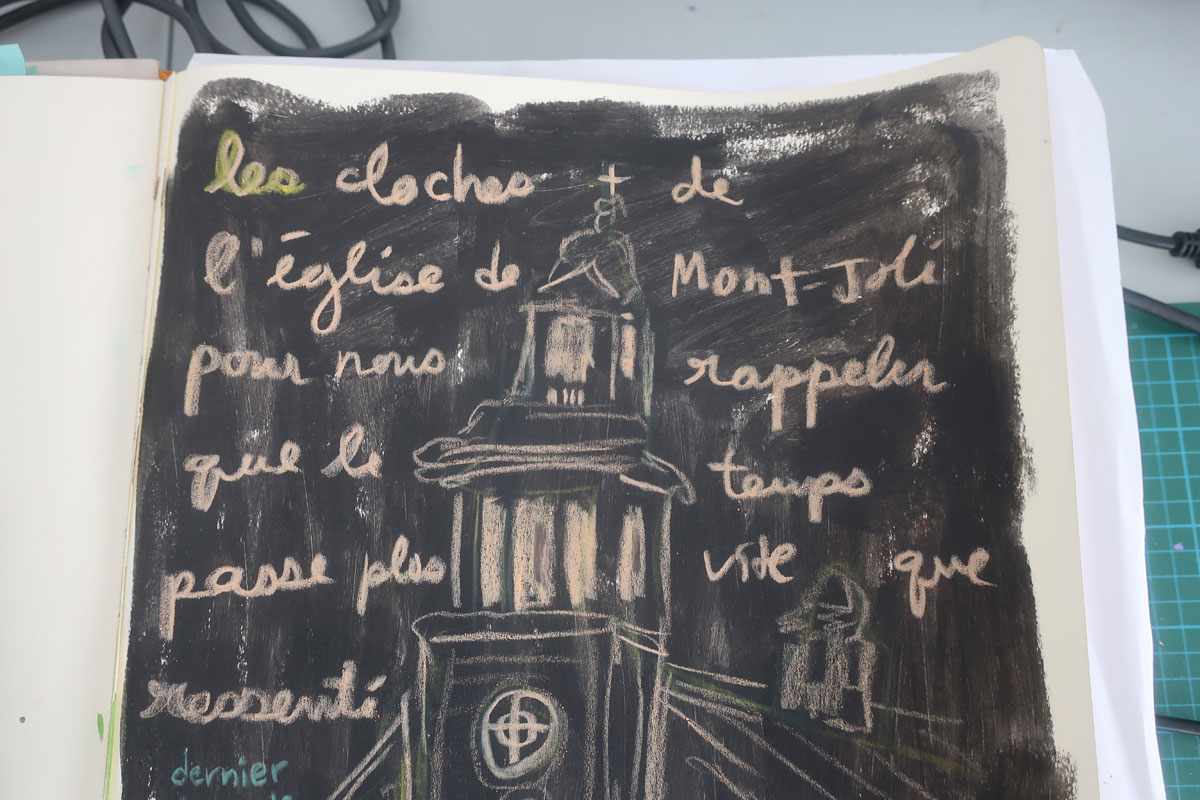 les cloches de
l'église de Mont-Joli
pour nous rappeler
que le temps
passe plus vite que
ressenti
dernier